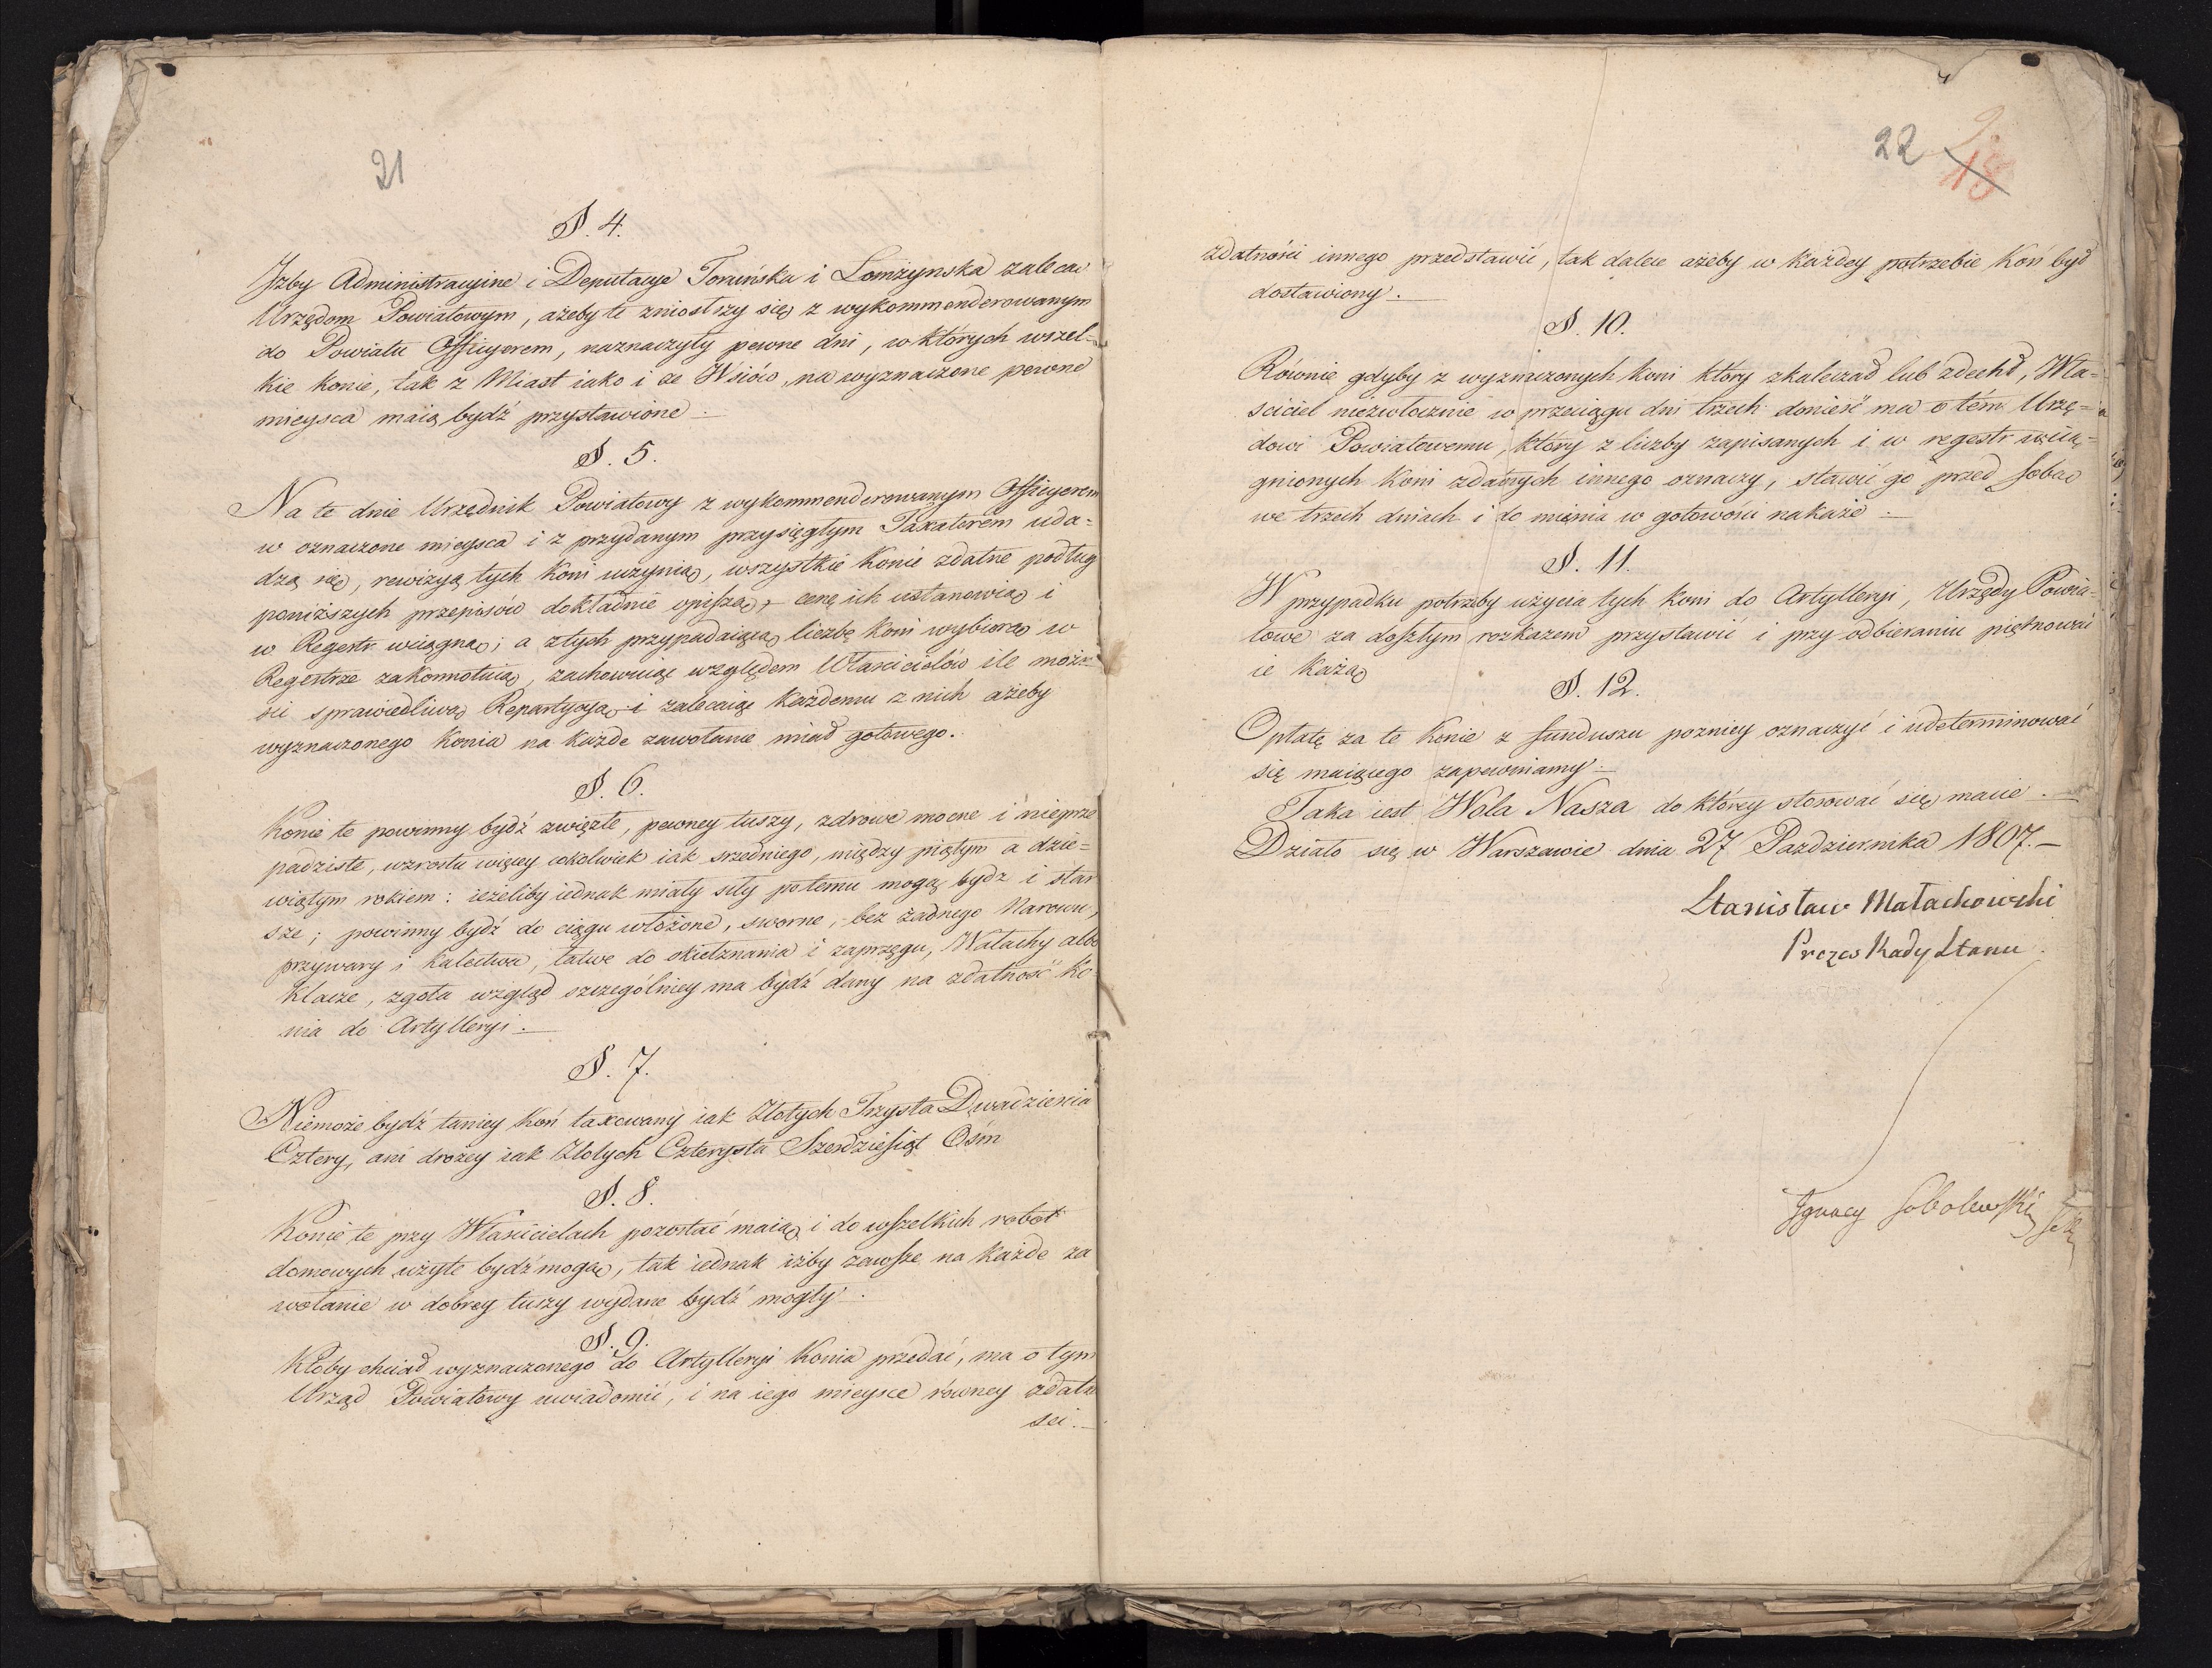 21
§. 4.
Izby Administracyine i Deputacye Toruńska i Łomżynska zalecą
Urzędom Powiatowym, ażeby te zniosłszy się z wykommenderowanym
do Powiatu Officyerem, naznaczyły pewne dni, w których wszel=
kie konie, tak z Miast iako i ze Wsiów, na wyznaczone pewne
mieysca maią bydź przystawione.
§. 5.
Na te dnie Urzędnik Powiatowy z wykommenderowanym Officyerem
w oznaczone mieysca i z przydanym przysięgłym Taxatorem uda=
dzą się, rewizyą tych koni uczynią, wszystkie konie zdatne podług
poniższych przepisów dokładnie opiszą, cenę ich ustanowią i
w Regestr wciągną; a z tych przypadaiącą liczbę koni wybiorą w
Regestrze zakonnotuią, zachowuiąc względem Właścicielów ile możno
ści sprawiedliwą Repartycyą i zalecaiąc każdemu z nich ażeby
wyznaczonego konia na każde zawołanie miał gotowego.
§. 6.
Konie te powinny bydź zwięzłe, pewney tuszy, zdrowe mocne i nieprze
padziste, wzrostu więcey cokolwiek iak srzedniego, między piątym a dzie=
wiątym rokiem: ieżeliby iednak miały siły potemu mogą bydz i star
sze; powinny bydź do ciągu włożone, sworne, bez żadnego Narowu,
przywary i kalectwa, łatwe do okiełznania i zaprzęgu, Wałachy albo
Klacze, zgoła wzgląd szczególniey ma bydź dany na zdatność ko
nia do Artylleryi.
§. 7.
Niemoże bydź taniey koń taxowany iak Złotych Trzysta Dwadzieścia
Cztery, ani drożey iak Złotych Czterysta Szesdziesiąt Ośm
§. 8.
Konie te przy Właścicielach pozostać maią i do wszelkich robot
domowych użyte bydź mogą, tak iednak iżby zawsze na każde za
wołanie w dobrey tuszy wydane bydź mogły.
§. 9.
Ktoby chciał wyznaczonego do Artylleryi Konia przedać, ma o tym
Urząd Powiatowy uwiadomić, i na iego mieysce równey zdatno
ści.
22
18
zdatności innego przedstawić, tak dalece ażeby w każdey potrzebie Koń był
dostawiony.
§. 10.
Równie gdyby z wyznaczonych koni który skaleczał lub zdechł, Wła=
ściciel niezwłocznie w przeciągu dni trzech donieść ma o tém Urzę=
dowi Powiatowemu, który z liczby zapisanych i w regestr wcią=
gnionych koni zdatnych innego oznaczy, stawić go przed sobą
we trzech dniach i do miénia w gotowości nakaże.
§. 11.
W przypadku potrzeby użycia tych koni do Artylleryi, Urzędy Powia=
towe za doszłym rozkazem przystawić i przy odbieraniu piętnować
ie każą
§. 12.
Opłatę za te konie z funduszu pozniey oznaczyć i udeterminować
się maiącego zapewniamy.
Taka iest Wola Nasza do którey stosować się macie.
Działo się w Warszawie dnia 27 Pazdziernika 1807.
Stanisław Małachowski
Prezes Rady Stanu.
Ignacy Sobolewski